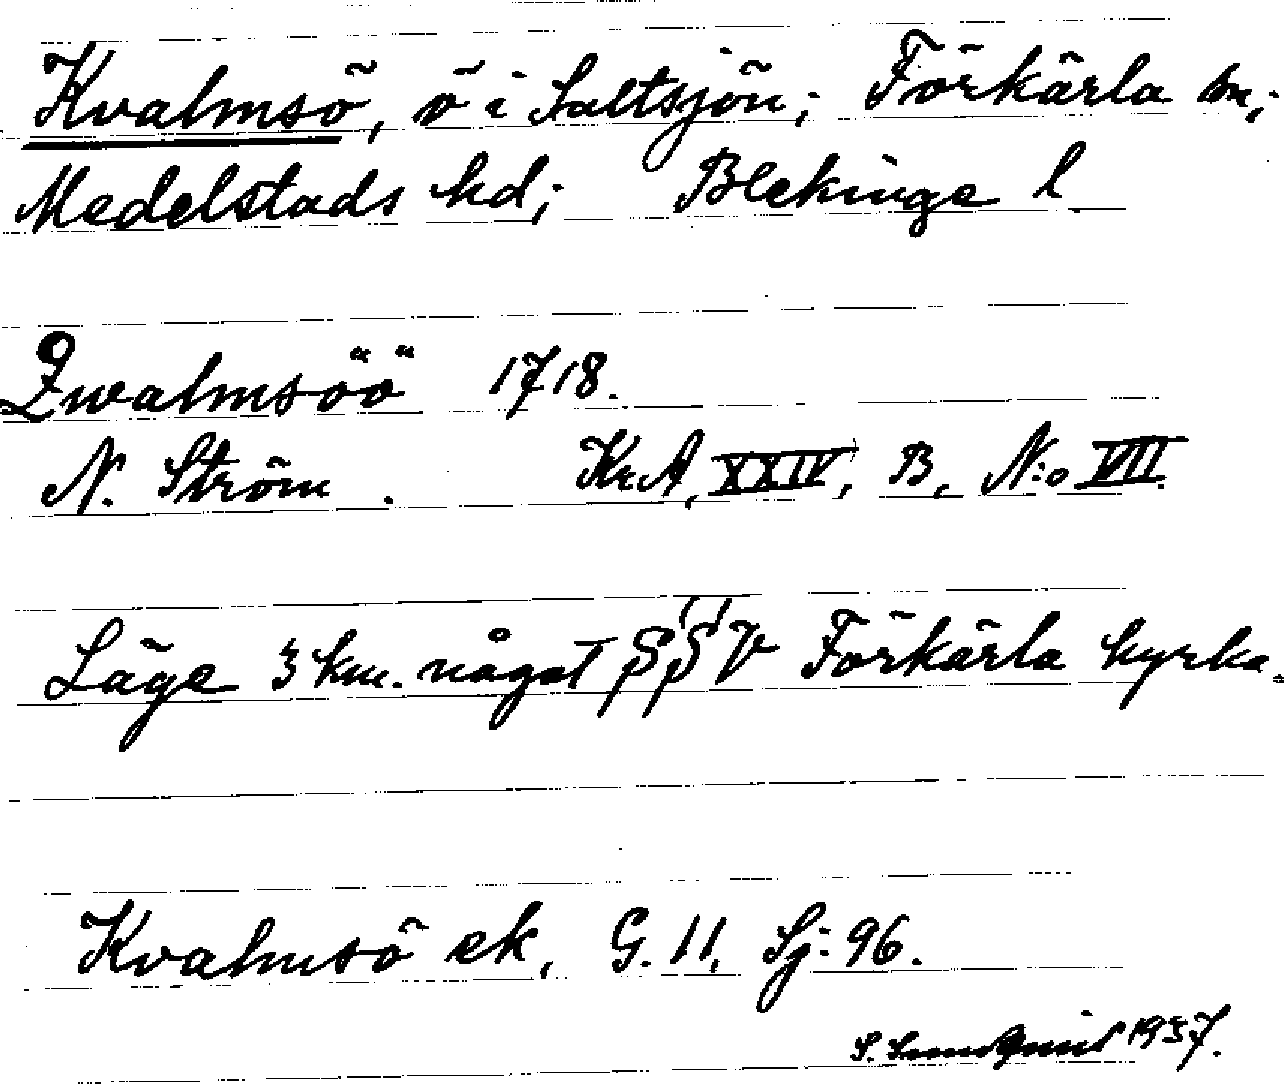 Kvalmsö, ö i Saltsjön; Förkärla sn;
Medelstads hd; Blekinge l
Qwalmsöö 1718.
N. Ström. Kr.A, XXIV, B, N:o VII.
Läge 3 km. något SSV Förkärla kyrka.
Kvalmsö ek, G. 11, Sj: 96.
S. Sundquist 1937.